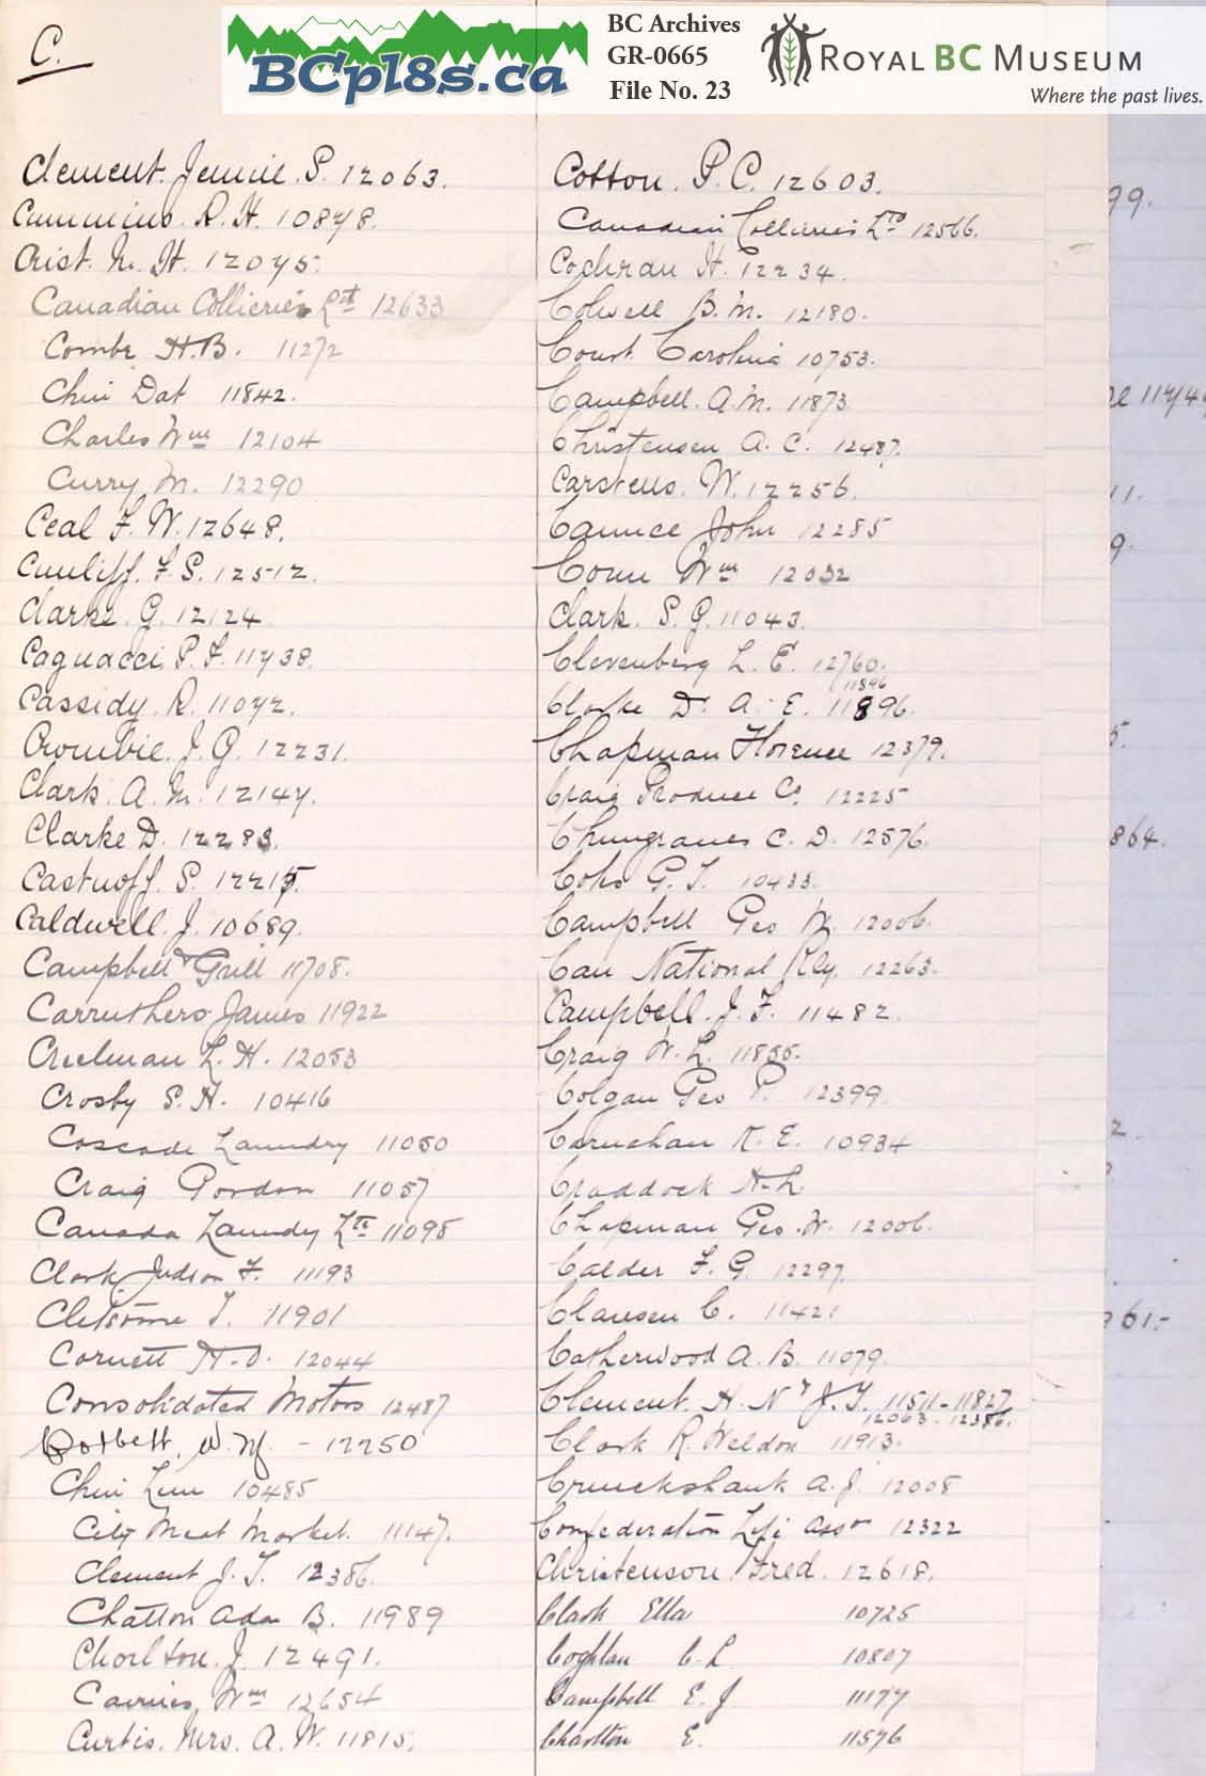 C.
BCpl8s.ca
BC Archives
GR-0665
File No. 23
ROYAL BC MUSEUM
Where the past lives.
Clement. Jennie. S. 12063.
Cummins. R. H. 10848.
Crist. N. H. 12045.
Canadian Collieries Ltd 12633
Combe H.B. 11272
Chin Dat 11842.
Charles Wm 12104
Curry M. 12290
Ceal F. W. 12648.
Cunliff. F. S. 12512.
Clarke. G. 12124
Cagnacci P. F. 11438.
Cassidy. R. 11042.
Crombie. J. G. 12231.
Clark. A. M. 12144.
Clarke D. 12283.
Castnoff. S. 12215.
Caldwell. J. 10689.
Campbell & Grill 11708.
Carruthers James 11922
Creelman L. H. 12053
Crosby S. H. 10416
Cascade Laundry 11050
Craig Gordon 11057
Canada Laundry Ltd 11098
Clark Judson F. 11193
T. 11901
Cornett H. O. 12044
Consolidated Motors 12487
Corbett, W. M. - 12250
Chin Lun 10485
City Meat Market. 11147.
Clement J. T. 12386.
Chatton Ada B. 11989
Chorlton. J. 12491.
Cairnies, Wm 12654
Curtis. Mrs. A. W. 11815.
Cotton. P. C. 12603.
Canadian Collieries Ltd 12566.
Cochran H. 12234.
Colwell B. M. 12180.
Court Carolina 10753.
Campbell. A. M. 11873
Christensen A. C. 12487.
Carstens. W. 12256.
Caunce John 12285
Conn Wm 12032
Clark. S. G. 11043.
Clevenberg L. E. 12760.
11896
Clarke D. A. E. 11896.
Chapman Florence 12379.
Craig Produce Co 12225
Chungranes C. D. 12576.
G. T. 10433.
Campbell Geo W. 12006.
Can National Rly. 12263.
Campbell. J. F. 11482.
Craig W. L. 11855.
Colgan Geo P. 12399.
Carnahan R. E. 10934
Craddock H. L.
Chapman Geo. W. 12006.
Calder F. G. 12297
Clausen C. 11421
Catherwood A. B. 11079.
Clement. H. N & J. T. 11511-11827
12063 - 12386.
Clark R. Weldon 11913.
Cruickshank A. J. 12008
Confederation Life Assn 12322
Christenson. Fred. 12618.
Clark Ella 10725
Coghlan C. L 10807
Campbell E. J 11177
Charlton E. 11576
99.
11.
9.
5.
864.
2.
61.-